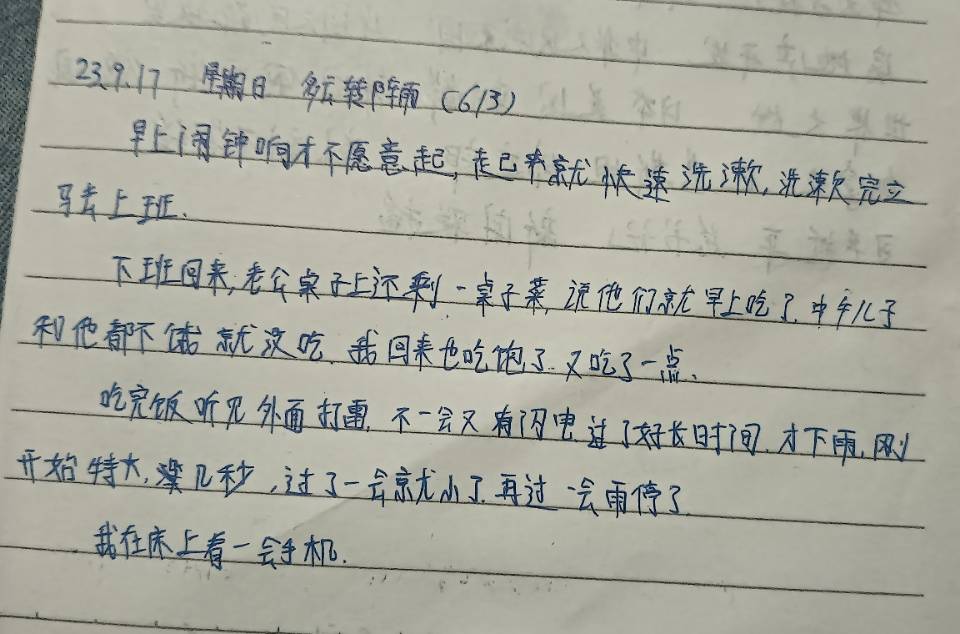 23.9.17 星期日 多云转阵雨 (613)
早上闹钟响才不愿意起,起来就快速洗漱,洗漱完立
马去上班.
下班回来,老公桌子上还剩一桌子菜,说他们就早上吃了.中午儿子
和他都不饿就没吃.我回来也吃饱了.又吃了一点.
吃完饭听见外面打雷.不一会又有闪电.过了好长时间.才下雨.刚
开始特大,没几秒,过了一会就小了.再过一会雨停了
我在床上看一会手机.